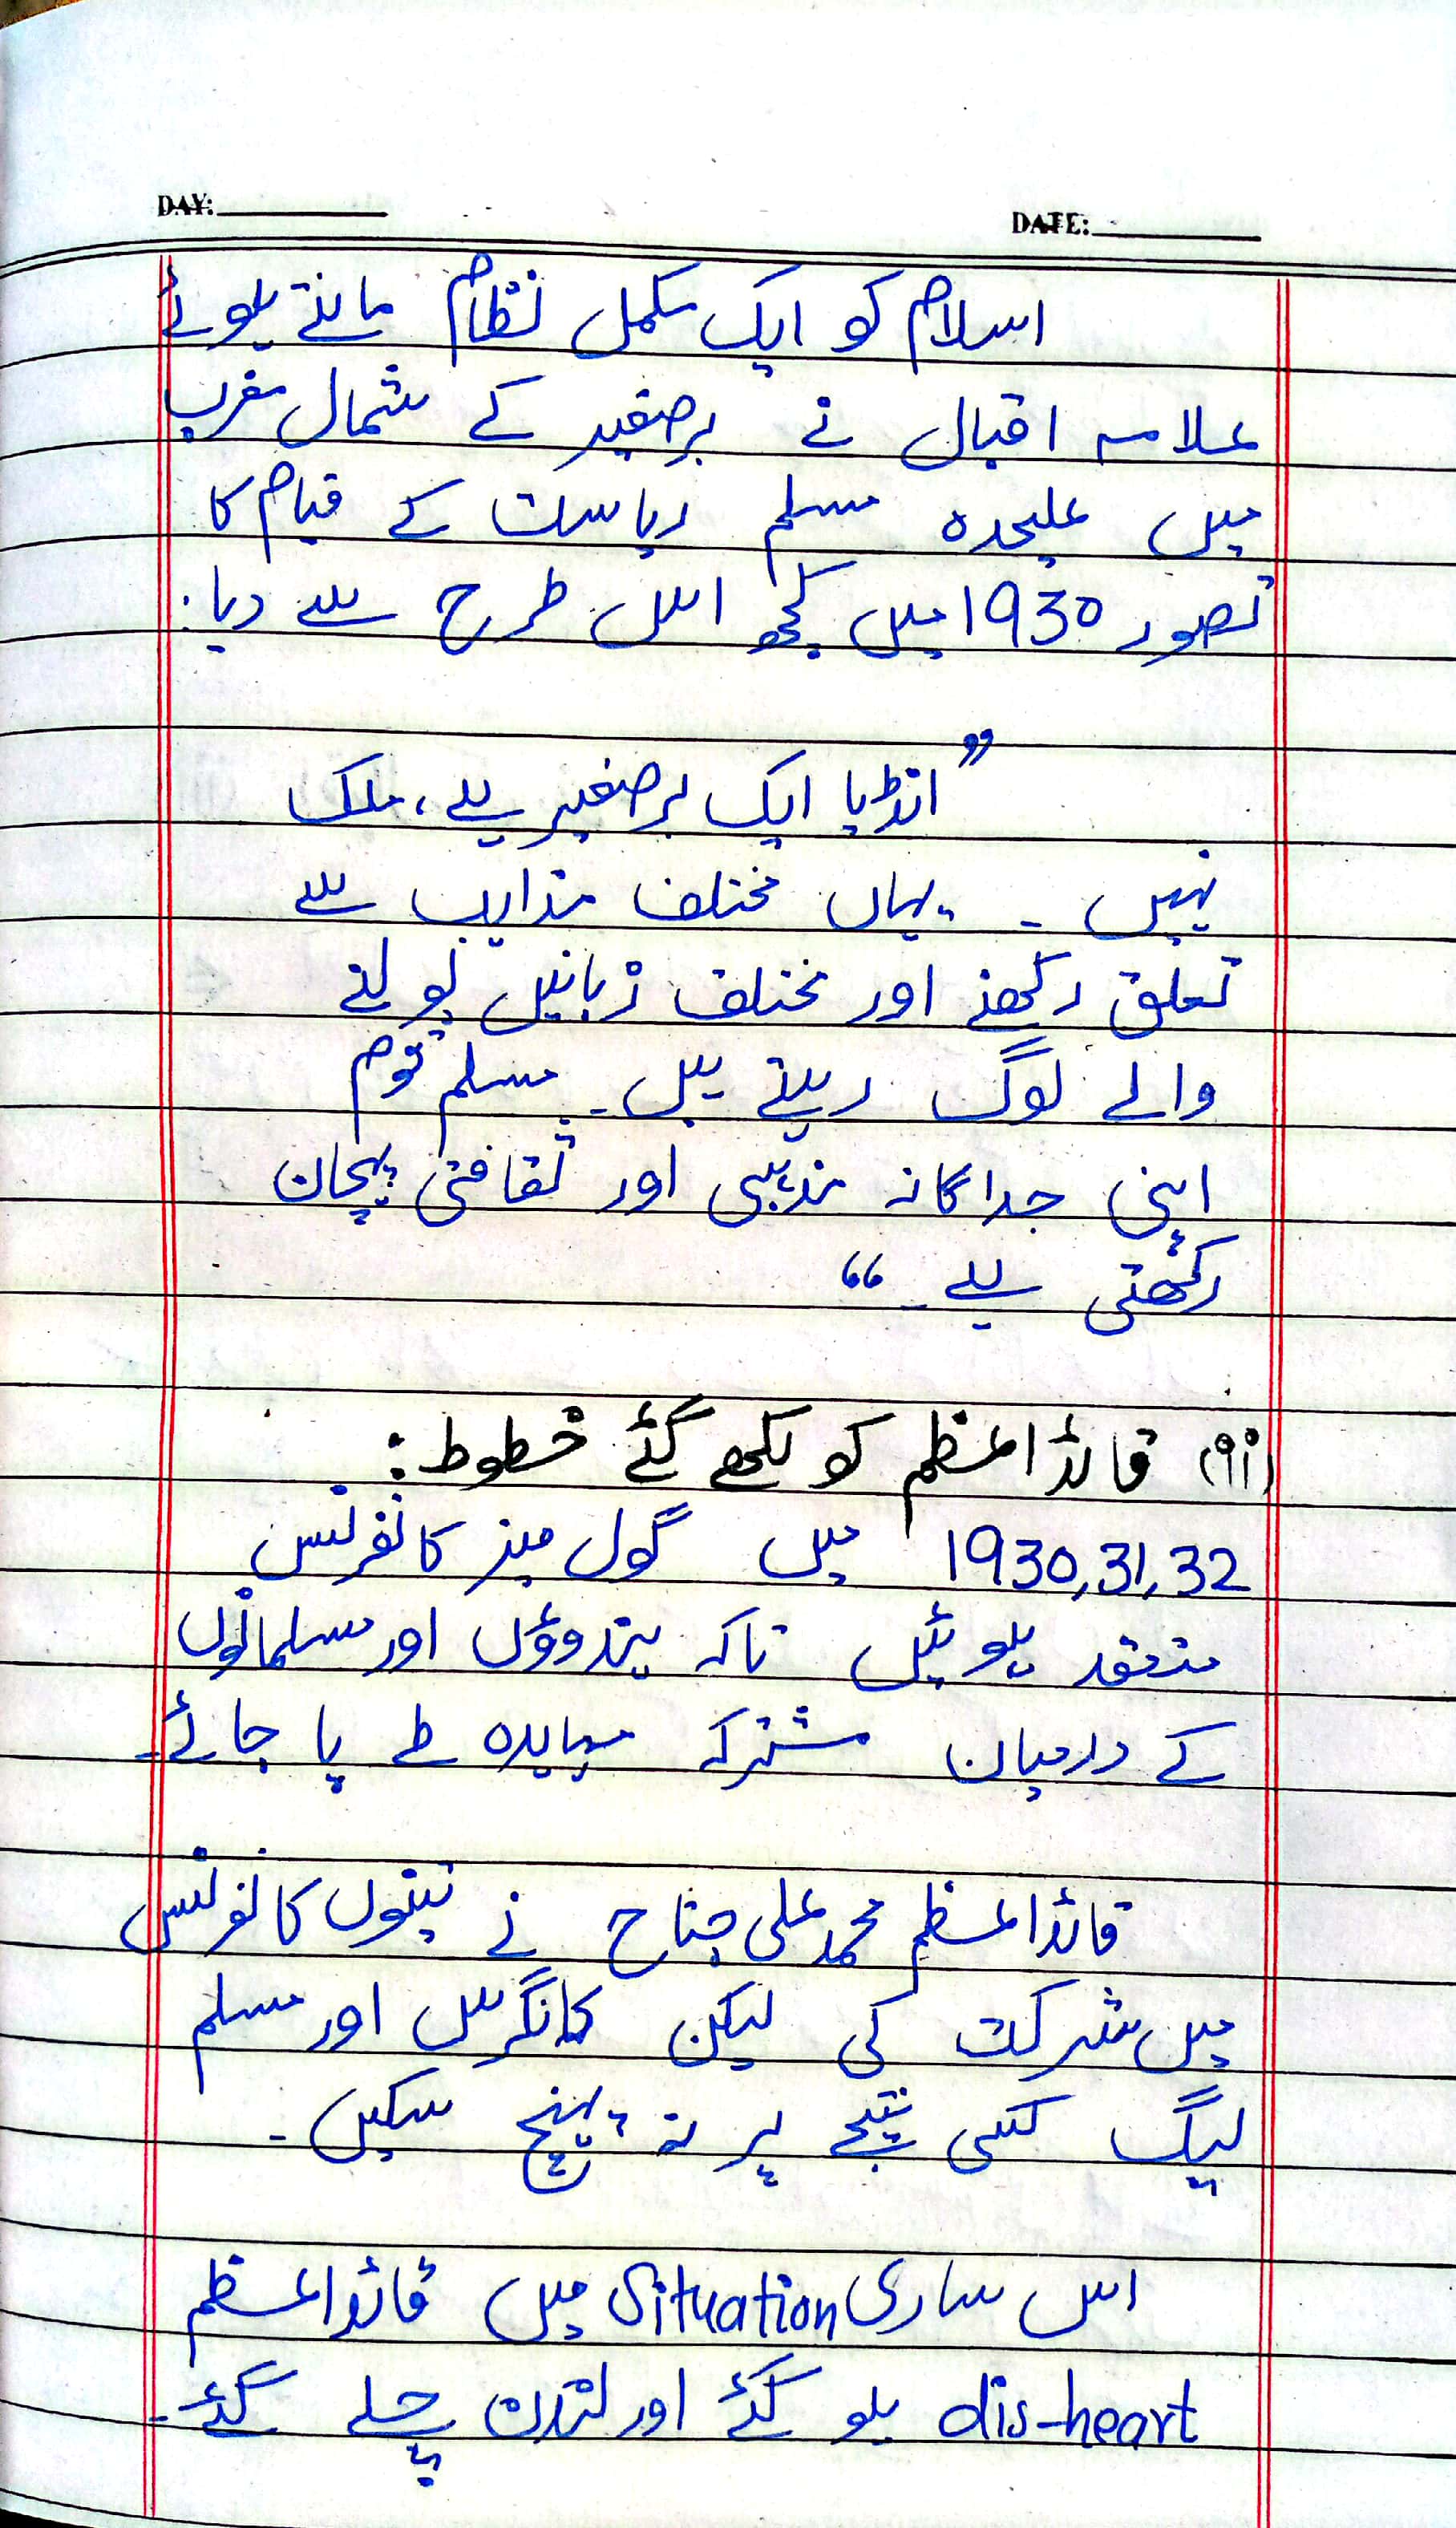 DAY:
DATE:
اسلام کو ایک مکمل نظام مانتے ہوئے
علامہ اقبال نے برصغیر کے شمال مغرب
میں علیحدہ مسلم ریاست کے قیام کا
تصور 1930 میں کچھ اس طرح سے دیا:
”انڈیا ایک برصغیر ہے، ملک
نہیں ۔ یہاں مختلف مذاہب سے
تعلق رکھنے اور مختلف زبانیں بولنے
والے لوگ رہتے ہیں۔ مسلم قوم
اپنی جداگانہ مذہبی اور ثقافتی پہچان
رکھتی ہے ۔“
قائداعظم کو لکھے گئے خطوط:
1930,31,32 میں گول میز کانفرنس
منعقد ہوئیں تاکہ ہندوؤں اور مسلمانوں
کے درمیان مشترکہ معاہدہ طے پا جائے۔
قائداعظم محمد علی جناح نے تینوں کانفرنس
میں شرکت کی لیکن کانگرس اور مسلم
لیگ کسی نتیجے پر نہ پہنچ سکیں ۔
اس ساری Situation میں قائداعظم
dis-heart ہو گئے اور لندن چلے گئے۔